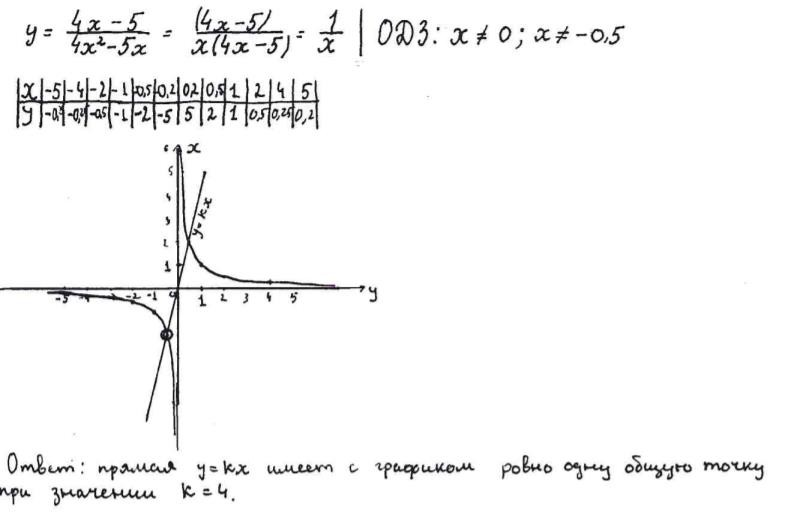 y = (4x - 5)/(4x² - 5x) = (4x - 5)/(x(4x - 5)) = 1/x | ОДЗ: x ≠ 0; x ≠ -0,5
|x|-5|-4|-2|-1|-0,5|-0,2|0,2|0,5|1|2|4|5|
|y|-0,2|-0,25|-0,5|-1|-2|-5|5|2|1|0,5|0,25|0,2|
6 x
5
4
3
y = kx
2
1
-5 -4 -2 -1 0 1 2 3 4 5 y
Ответ: прямая y = kx имеет с графиком ровно одну общую точку
при значении k = 4.